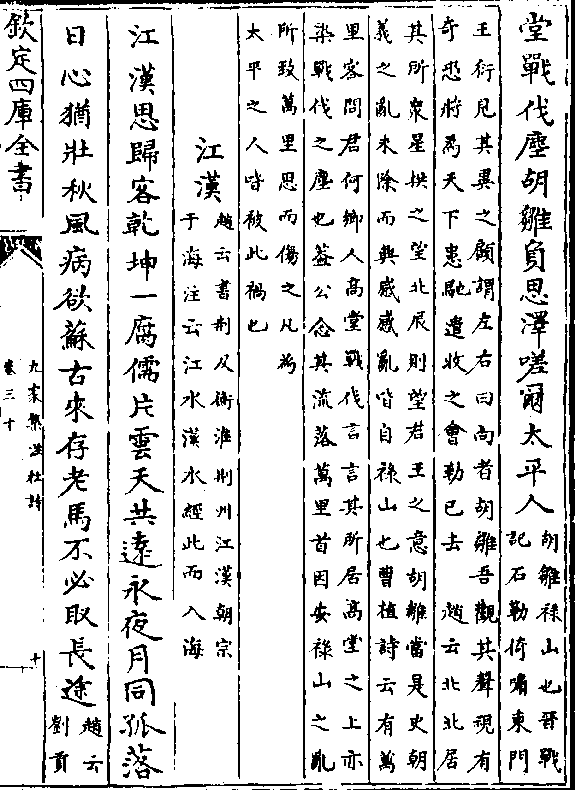 堂戰伐塵胡雛負恩澤嗟爾太平人
胡雛祿山也晉載
記石勒倚嘯東門
王衍見其異之顧謂左右曰向者胡雛吾觀其聲視有
奇恐將為天下患馳遣收之會勒已去 趙云北北居
其所衆星拱之望北辰則望君王之意胡雛當是史朝
義之亂未除而興感感亂皆自祿山也曹植詩云有萬
里客問君何鄉人高堂戰伐言言其所居高堂之上亦
染戰伐之塵也蓋公念其流落萬里首因安祿山之亂
所致萬里思而傷之凡為
太平之人皆被此禍也
江漢
趙云書荆及衡淮荆州江漢朝宗
于海注云江水漢水經此而入海
江漢思歸客乾坤一腐儒片雲天共遠永夜月同孤落
日心猶壯秋風病欲蘇古來存老馬不必取長途
趙云
劉貢
欽定四庫全書
九家集注杜詩
卷三十
十